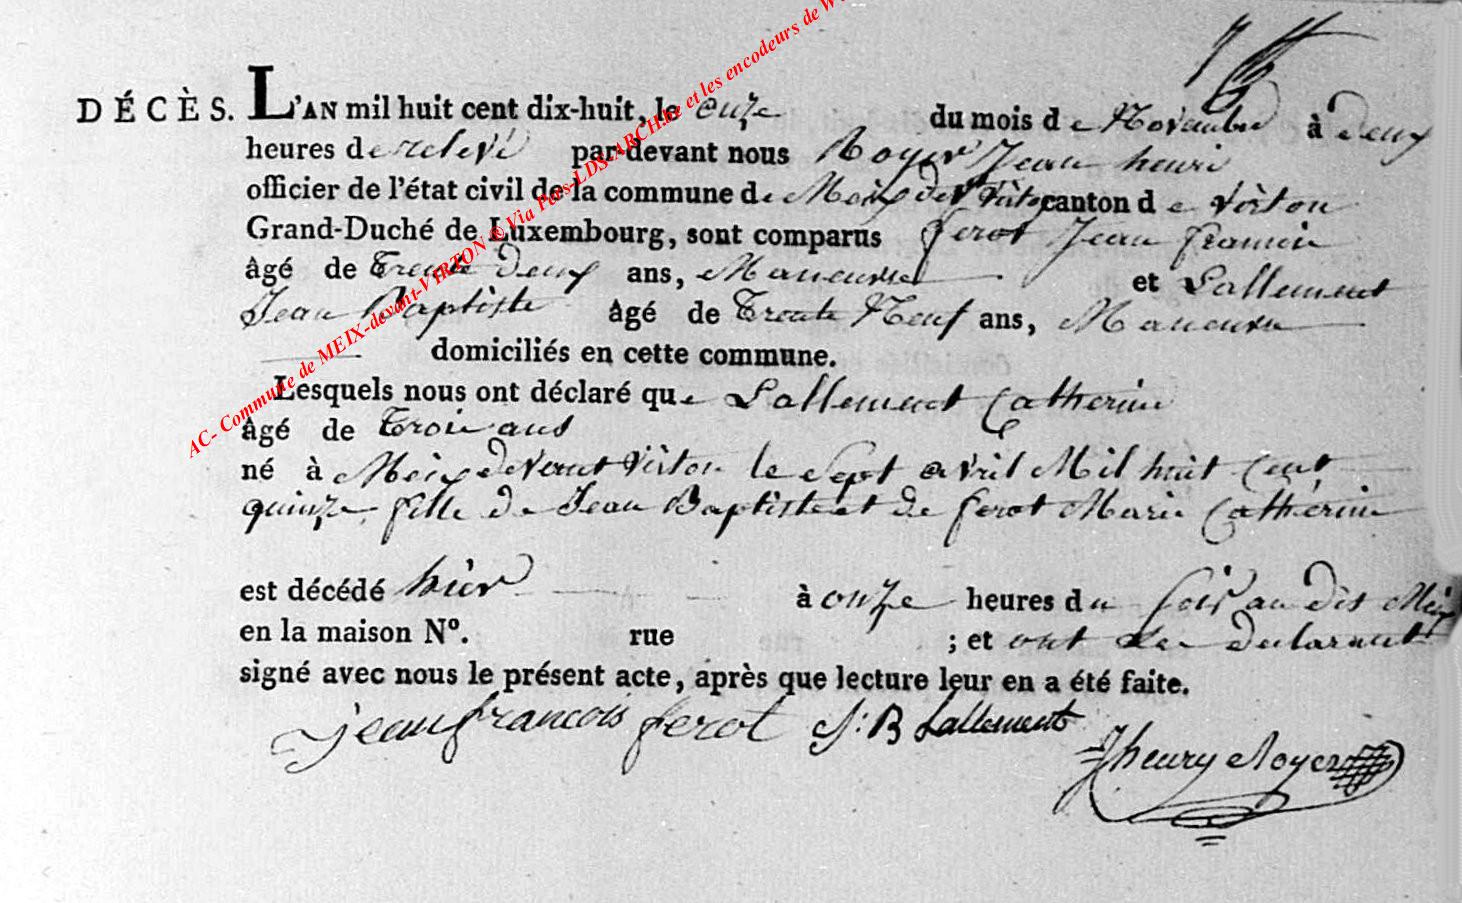 DÉCÈS. L'AN mil huit cent dix-huit, le onze du mois de Novembre à deux
heures de relevé par-devant nous Royer Jean henri
officier de l'état civil de la commune de Meix devt Virton canton de Virton
Grand-Duché de Luxembourg, sont comparus ferot Jean francois
âgé de Trente deux ans, Maneuvre et Lallement
Jean Baptiste âgé de Trente Neuf ans, Maneuvre
domiciliés en cette commune.
Lesquels nous ont déclaré que Lallement Catherine
âgé de Trois ans
né à Meix devant Virton le Sept avril Mil huit Cent
quinze fille de Jean Baptiste et de ferot Marie Catherine
est décédé hier à onze heures du soir au dit Meix
en la maison N°. rue ; et ont les declarant
signé avec nous le présent acte, après que lecture leur en a été faite.
jean francois ferot J: B Lallement
Jhenry Royer
AC- Commune de MEIX-devant-VIRTON © Via Pers-LDS-ARCH.be et les encodeurs de